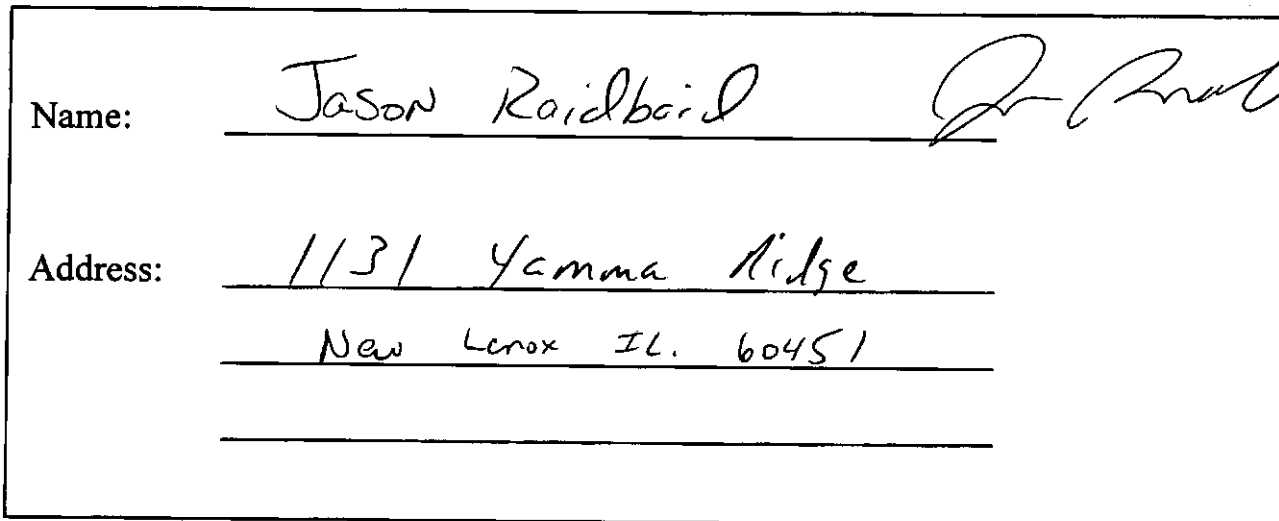 Name: Jason Raidbaird
Address: 1131 Yamma Ridge
New Lenox IL. 60451